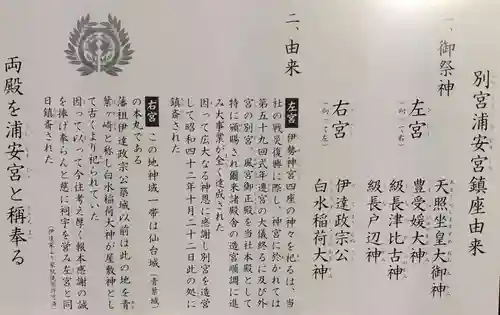 別宮浦安宮鎮座由来
一、御祭神
左宮
(向って右)
天照坐皇大御神
豊受媛大神
級長津比古神
級長戸辺神
右宮
(向って左)
伊達政宗公
白水稲荷大神
二、由来
左宮 伊勢神宮四座の神々を祀るは、当
社の戦災復興に際し、神宮に於かれては
第五十九回式年遷宮の大儀終るに及び外
宮の別宮、風宮御正殿を当社本殿として
特に頒賜され爾来諸殿舎の造宮順調に進
み大事業が全く達成された
因って広大なる神恩に感謝し別宮を造営
して昭和四十二年十月二十二日此の処に
鎮斎された
右宮 この地神域一帯は仙台城(青葉城)
の本丸である
藩祖伊達政宗公築城以前は此の地を青
葉ヶ崎と称し白水稲荷大神が屋敷神とし
て古くより祀られていた
因って以って今往考え厚く報本感謝の誠
を捧げ奉らんと慈に祠宇を営み左宮と同
日鎮斎された
両殿を浦安宮と稱奉る